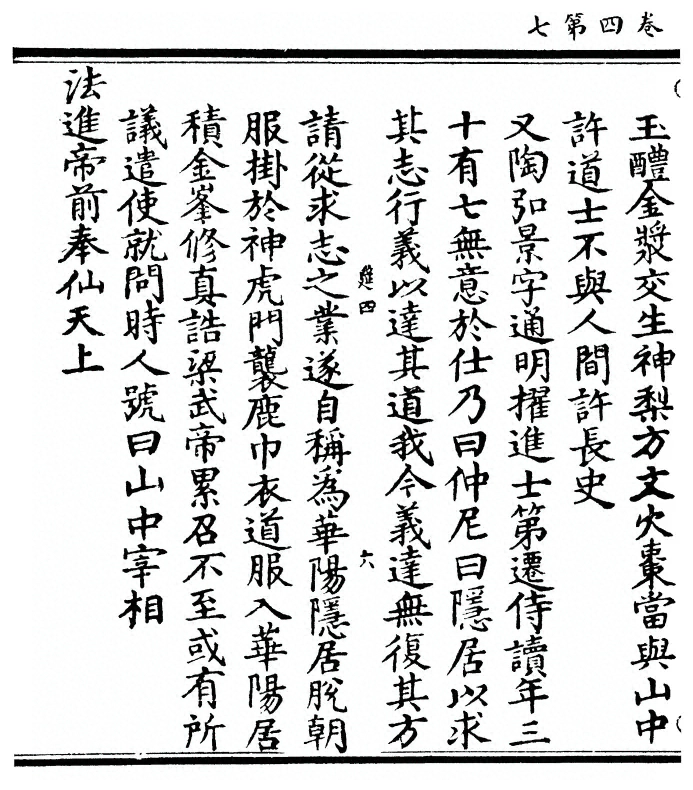 卷四第七
玉醴金漿交生神梨方丈火棗當與山中
許道士不與人間許長史
又陶弘景字通明擢進士第遷侍讀年三
十有七無意於仕乃曰仲尼曰隱居以求
其志行義以達其道我今義達無復其方
進四
六
請從求志之業遂自稱為華陽隱居脫朝
服掛於神虎門襲鹿巾衣道服入華陽居
積金峯修真誥梁武帝累召不至或有所
議遣使就問時人號曰山中宰相
法進帝前奉仙天上